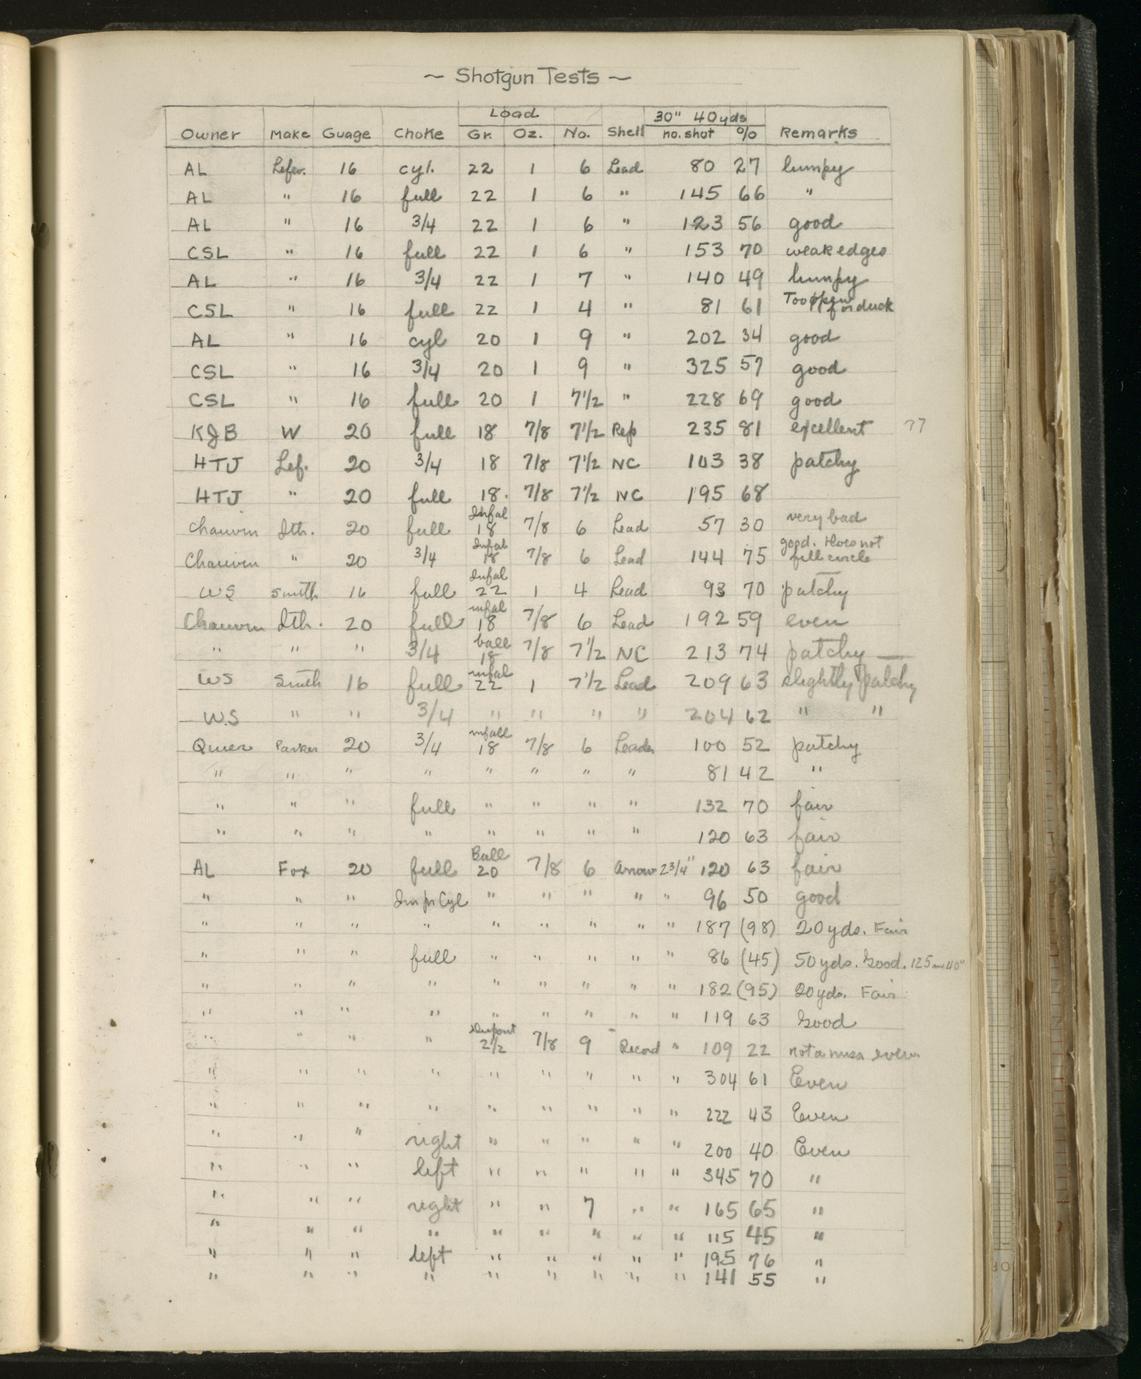 ~ Shotgun Tests ~
Load 30" 40 yds
Owner Make Guage Choke Gr. Oz. No. Shell no. shot % Remarks
AL Lefev. 16 cyl. 22 1 6 Lead 80 27 lumpy
AL " 16 full 22 1 6 " 145 66 "
AL " 16 3/4 22 1 6 " 123 56 good
CSL " 16 full 22 1 6 " 153 70 weak edges
AL " 16 3/4 22 1 7 " 140 49 lumpy
CSL " 16 full 22 1 4 " 81 61 Too open for duck
AL " 16 cyl 20 1 9 " 202 34 good
CSL " 16 3/4 20 1 9 " 325 57 good
CSL " 16 full 20 1 7 1/2 " 228 69 good
KJB W 20 full 18 7/8 7 1/2 Rep 235 81 excellent 77
HTJ Lef. 20 3/4 18 7/8 7 1/2 NC 103 38 patchy
HTJ " 20 full 18. 7/8 7 1/2 NC 195 68
Chauvin Ith. 20 full Infal 18 7/8 6 Lead 57 30 very bad
Chauvin " 20 3/4 Infal 18 7/8 6 Lead 144 75 good. Does not fill circle
WS Smith 16 full Infal 22 1 4 Lead 93 70 patchy
Chauvin Ith. 20 full infal 18 7/8 6 Lead 192 59 even
" " " 3/4 ball 18 7/8 7 1/2 NC 213 74 patchy —
WS Smith 16 full infal 22 1 7 1/2 Lead 209 63 slightly patchy
W.S " " 3/4 " " " " 204 62 " "
Quier Parker 20 3/4 infall 18 7/8 6 Leader 100 52 patchy
" " " " " " " " 81 42 "
" " " full " " " " 132 70 fair
" " " " " " " " 120 63 fair
AL Fox 20 full Ball 20 7/8 6 Arrow 2 3/4" 120 63 fair
" " " Impr Cyl " " " " " 96 50 good
" " " " " " " " " 187 (98) 20 yds. Fair
" " " full " " " " " 86 (45) 50 yds. Good. 125 in 40"
" " " " " " " " " 182 (95) 20 yds. Fair
" " " " " " " " " 119 63 Good
" " " " Dupont 2 1/2 7/8 9 Record " 109 22 even
" " " " " " " " " 304 61 Even
" " " " " " " " " 222 43 Even
" " " right " " " " " 200 40 Even
" " " left " " " " " 345 70 "
" " " right " " 7 " " 165 65 "
" " " " " " " " " 115 45 "
" " " left " " " " " 195 76 "
" " " " " " " " " 141 55 "